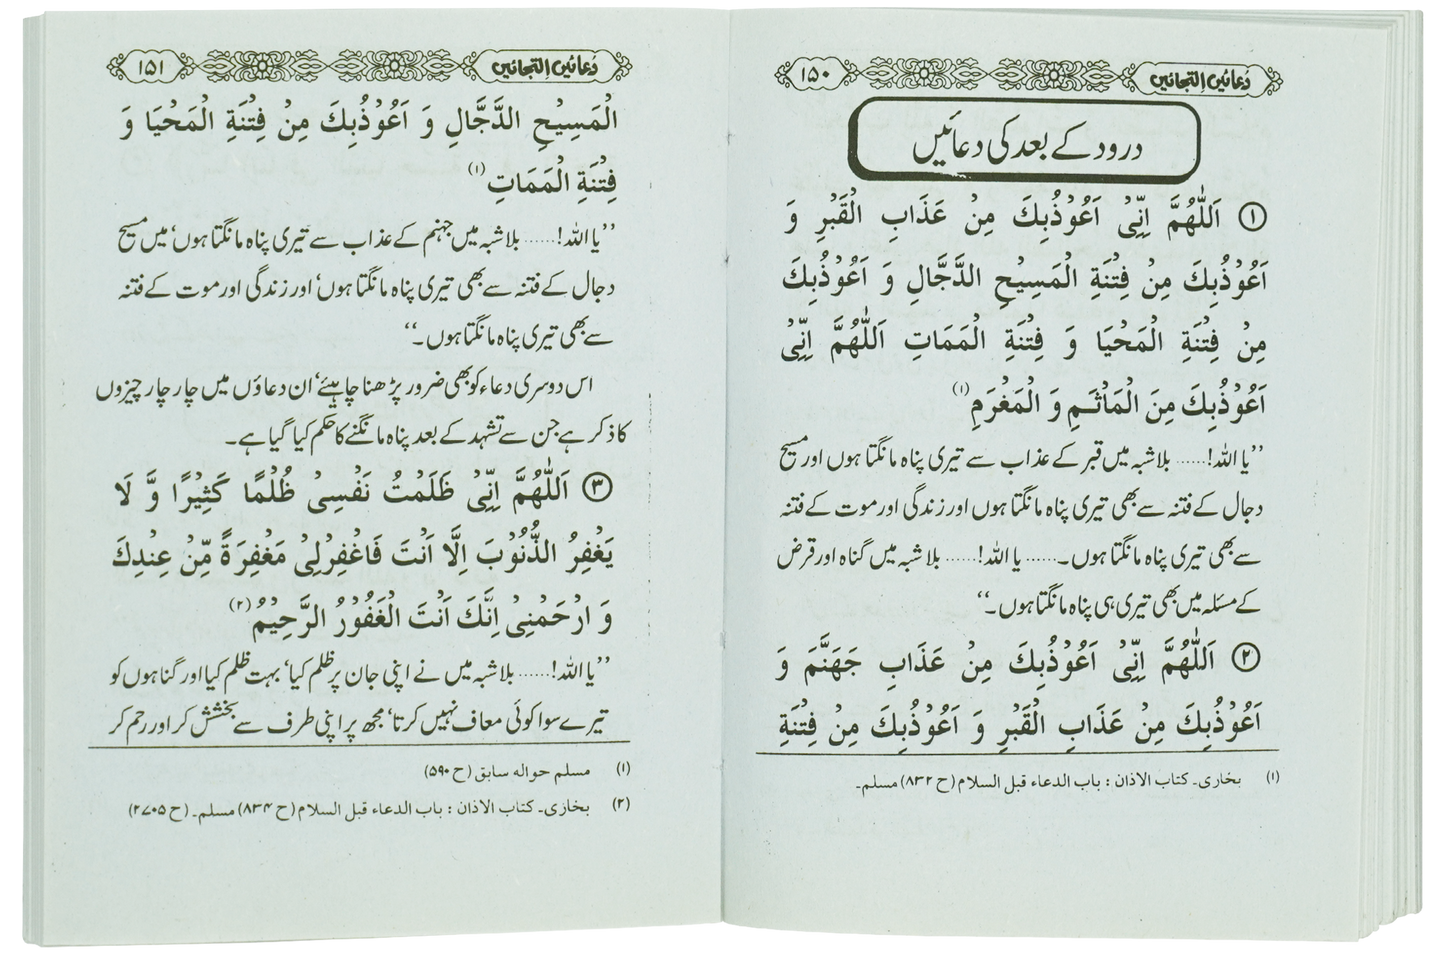 دعائیں التجائیں ۱۵۰
درود کے بعد کی دعائیں
① اَللّٰهُمَّ اِنِّیْ اَعُوْذُبِكَ مِنْ عَذَابِ الْقَبْرِ وَ
اَعُوْذُبِكَ مِنْ فِتْنَةِ الْمَسِيْحِ الدَّجَّالِ وَ اَعُوْذُبِكَ
مِنْ فِتْنَةِ الْمَحْيَا وَ فِتْنَةِ الْمَمَاتِ اَللّٰهُمَّ اِنِّیْ
اَعُوْذُبِكَ مِنَ الْمَاْثَمِ وَ الْمَغْرَمِ (۱)
’’یا اللہ!...... بلاشبہ میں قبر کے عذاب سے تیری پناہ مانگتا ہوں اور مسیح
دجال کے فتنہ سے بھی تیری پناہ مانگتا ہوں اور زندگی اور موت کے فتنہ
سے بھی تیری پناہ مانگتا ہوں۔...... یا اللہ!...... بلاشبہ میں گناہ اور قرض
کے مسئلہ میں بھی تیری ہی پناہ مانگتا ہوں۔‘‘
② اَللّٰهُمَّ اِنِّیْ اَعُوْذُبِكَ مِنْ عَذَابِ جَهَنَّمَ وَ
اَعُوْذُبِكَ مِنْ عَذَابِ الْقَبْرِ وَ اَعُوْذُبِكَ مِنْ فِتْنَةِ
(۱) بخاری۔ کتاب الاذان : باب الدعاء قبل السلام (ح ۸۳۲) مسلم۔
دعائیں التجائیں ۱۵۱
الْمَسِيْحِ الدَّجَّالِ وَ اَعُوْذُبِكَ مِنْ فِتْنَةِ الْمَحْيَا وَ
فِتْنَةِ الْمَمَاتِ (۱)
’’یا اللہ!...... بلاشبہ میں جہنم کے عذاب سے تیری پناہ مانگتا ہوں‘ میں مسیح
دجال کے فتنہ سے بھی تیری پناہ مانگتا ہوں‘ اور زندگی اور موت کے فتنہ
سے بھی تیری پناہ مانگتا ہوں۔‘‘
اس دوسری دعاء کو بھی ضرور پڑھنا چاہیئے‘ ان دعاؤں میں چار چار چیزوں
کا ذکر ہے جن سے تشہد کے بعد پناہ مانگنے کا حکم کیا گیا ہے۔
③ اَللّٰهُمَّ اِنِّیْ ظَلَمْتُ نَفْسِیْ ظُلْمًا كَثِيْرًا وَّ لَا
يَغْفِرُ الذُّنُوْبَ اِلَّا اَنْتَ فَاغْفِرْلِیْ مَغْفِرَةً مِّنْ عِنْدِكَ
وَ ارْحَمْنِیْ اِنَّكَ اَنْتَ الْغَفُوْرُ الرَّحِيْمُ (۲)
’’یا اللہ!...... بلاشبہ میں نے اپنی جان پر ظلم کیا‘ بہت ظلم کیا اور گناہوں کو
تیرے سوا کوئی معاف نہیں کرتا‘ مجھ پر اپنی طرف سے بخشش کر اور رحم کر
(۱) مسلم حوالہ سابق (ح ۵۹۰)
(۲) بخاری۔ کتاب الاذان : باب الدعاء قبل السلام (ح ۸۳۴) مسلم۔ (ح ۲۷۰۵)